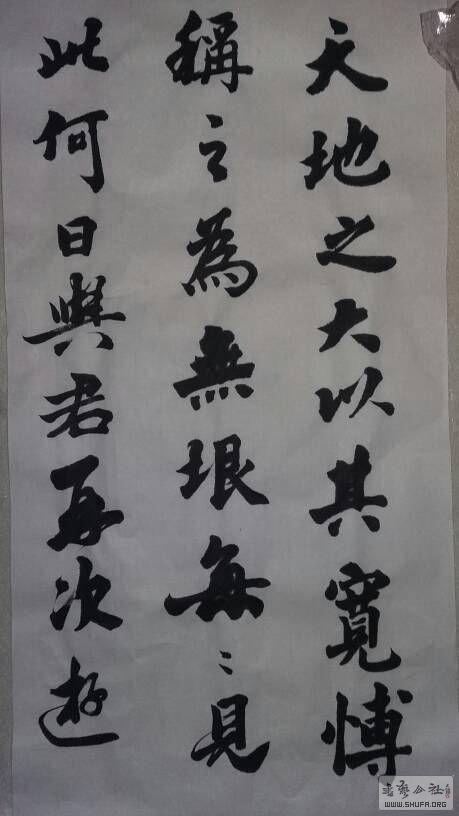 天地之大以其寬博
稱之為無垠無〻見
此何日與君再次遊
WWW.SHUFA.ORG